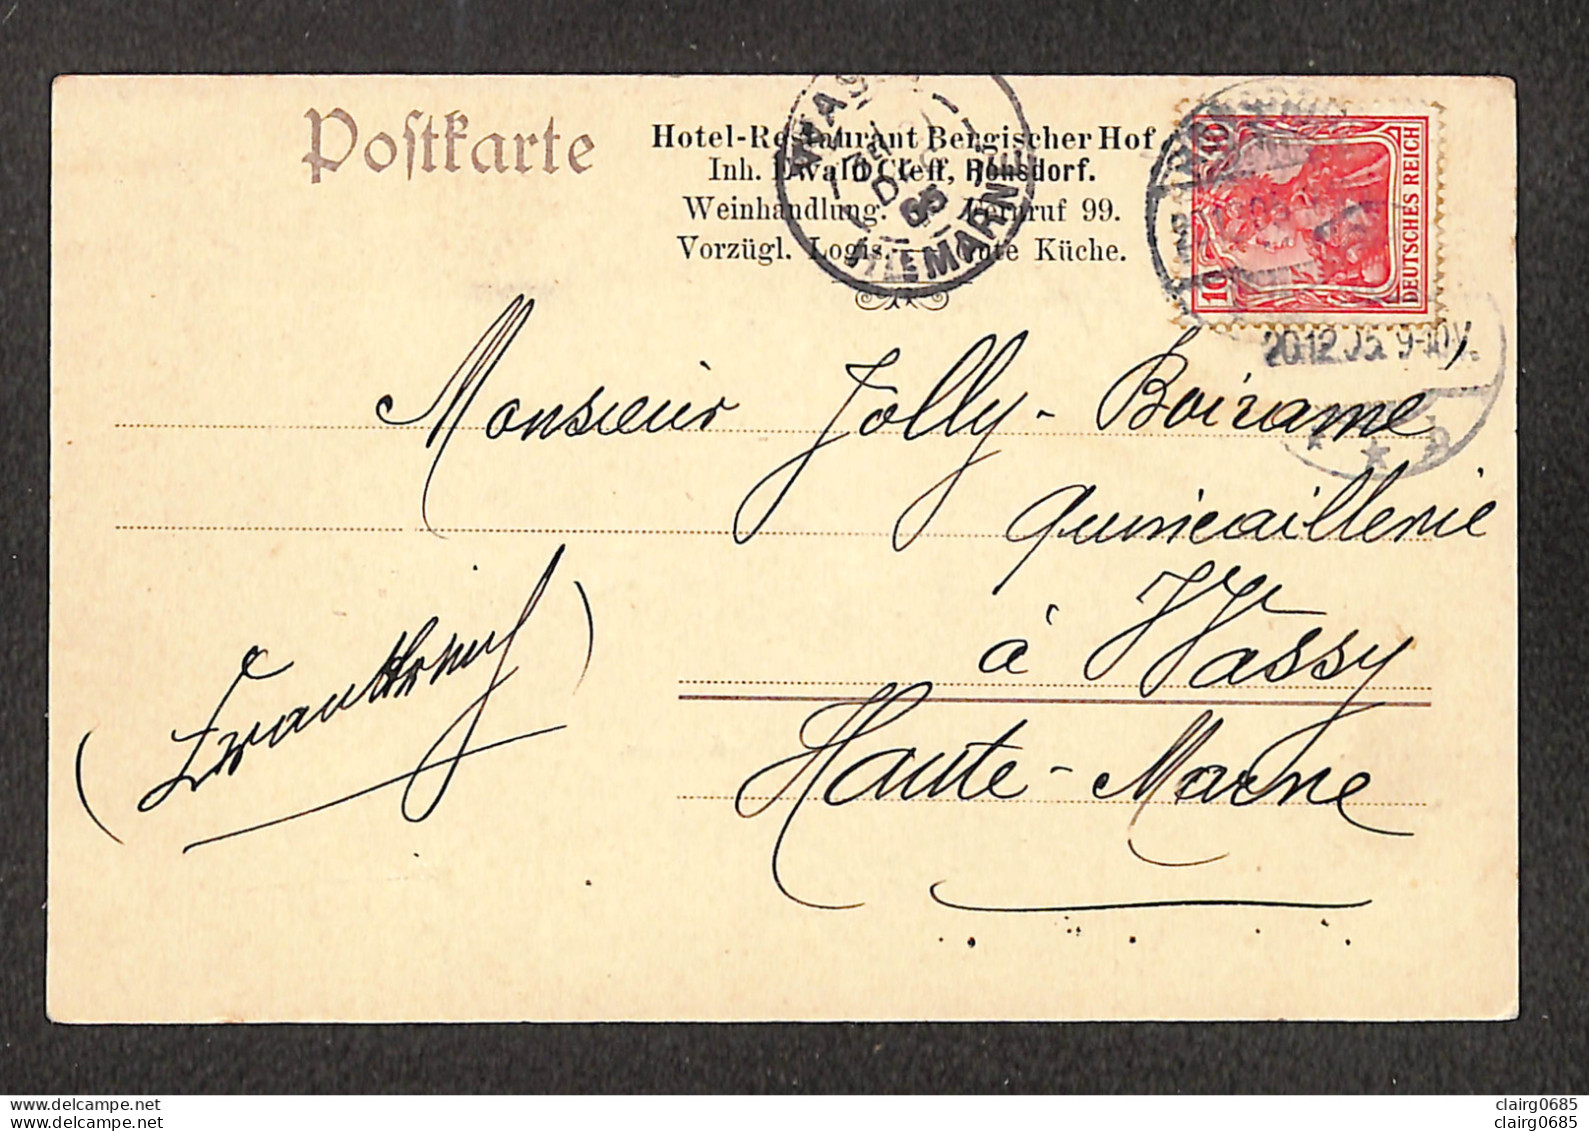 Poſtkarte
Hotel-Restaurant Bergischer Hof
Inh. Ewald Cleff, Rohsdorf.
Weinhandlung. Fernruf 99.
Vorzügl. Logis. — Gute Küche.
WASSY
HTE MARNE
DEUTSCHES REICH
10
10
20.12.05. 9-10V.
Monsieur Jolly-Boiramé
Quincaillerie
à Wassy
Haute-Marne
clairg0685
clairg0685